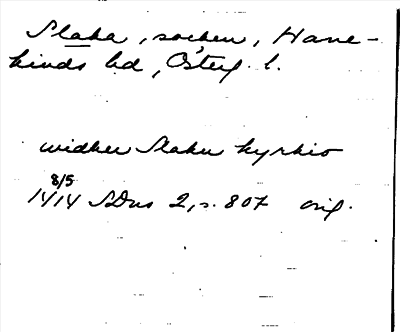 Slaka, socken, Hane-
kinds hd, Österg. l.
widher Slaku kyrkio
8/5
1414 SDns 2, s. 807 orig.